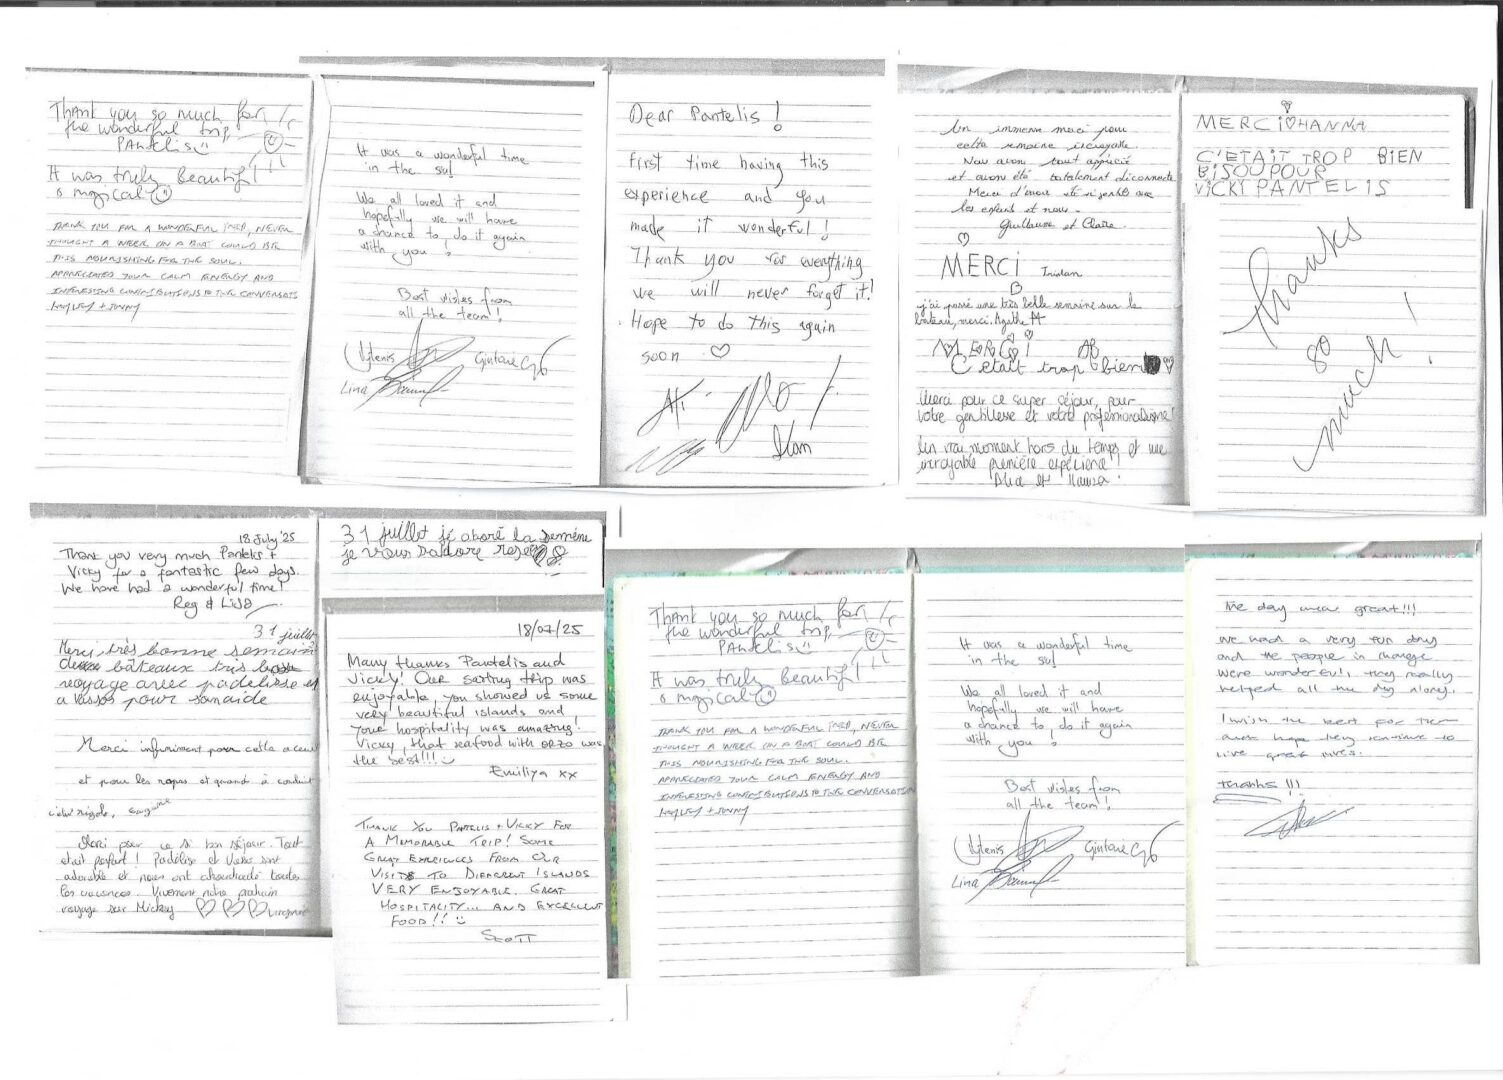 Thank you so much for
the wonderful trip,
PAntelis
It was truly beautiful
& magical
THANK YOU FOR A WONDERFUL TRIP, NEVER
THOUGHT A WEEK ON A BOAT COULD BE
THIS NOURISHING FOR THE SOUL.
APPRECIATED YOUR CALM ENERGY AND
INTERESTING CONTRIBUTIONS TO THE CONVERSATIONS
HAYLEY + JONNY
It was a wonderful time
in the sea!
We all loved it and
hopefully we will have
a chance to do it again
with you!
Best vishes from
all the team!
Vytenis
Gintarė
Lina
Dear Pantelis!
First time having this
experience and you
made it wonderful!
Thank you for everything
we will never forget it!
Hope to do this again
soon ♡
Ilan
Un immense merci pour
cette semaine incroyable.
Nous avons tout apprécié
et avons été totalement déconnectés
Merci d'avoir été si gentils avec
les enfants et nous.
Guillaume et Claire.
MERCI Tristan
j'ai passé une très belle semaine sur le
bateau, merci. Agathe
MERCI
C'était trop bien ♡
Merci pour ce super séjour, pour
votre gentillesse et votre professionalisme!
Un vrai moment hors du temps et une
incroyable première expérience!
MERCI♡HANNA
C'ETAIT TROP BIEN
BISOU POUR
VICKI PANTELIS
Thanks
so
much!
18 July '25
Thank you very much Pantelis +
Vicky for a fantastic few days.
We have had a wonderful time!
Reg & Lida
31 juillet
Merci très bonne semain
bâteaux très
voyage avec padelisse et
a vasso pour son aide
Merci infiniment pour cette
et pour les repas et quand à conduit
c'était rigolo, suzanne
Merci pour ce si bon séjour. Tout
était parfait! Padelise et Vasso sont
adorable et nous ont chouchouté toutes
les vacances. Vivement notre prochain
voyage sur Mickey ♡♡♡
31 juillet jé adoré la semeine
je vous
18/07/25
Many thanks Pantelis and
Vicky! Our sailing trip was
enjoyable, you showed us some
very beautiful islands and
your hospitality was amazing!
Vicky, that seafood with orzo was
the best!!!
Emiliya xx
THANK YOU PANTELIS + VICKY FOR
A MEMORABLE TRIP! SOME
GREAT EXPERIENCES FROM OUR
VISITS TO DIFFERENT ISLANDS
VERY ENJOYABLE. GREAT
HOSPITALITY... AND EXCELLENT
FOOD!!
SCOTT
Thank you so much for
the wonderful trip,
PAntelis
It was truly beautiful
& magical
THANK YOU FOR A WONDERFUL TRIP, NEVER
THOUGHT A WEEK ON A BOAT COULD BE
THIS NOURISHING FOR THE SOUL.
APPRECIATED YOUR CALM ENERGY AND
INTERESTING CONTRIBUTIONS TO THE CONVERSATION
HAYLEY + JONNY
It was a wonderful time
in the sea!
We all loved it and
hopefully we will have
a chance to do it again
with you!
Best vishes from
all the team!
Vytenis
Gintarė
Lina
The day was great!!!
We had a very fun day
and the people in charge
were wonderful, they really
helped all the day along.
I wish the best for them
and hope they continue to
live great lives.
thanks!!!